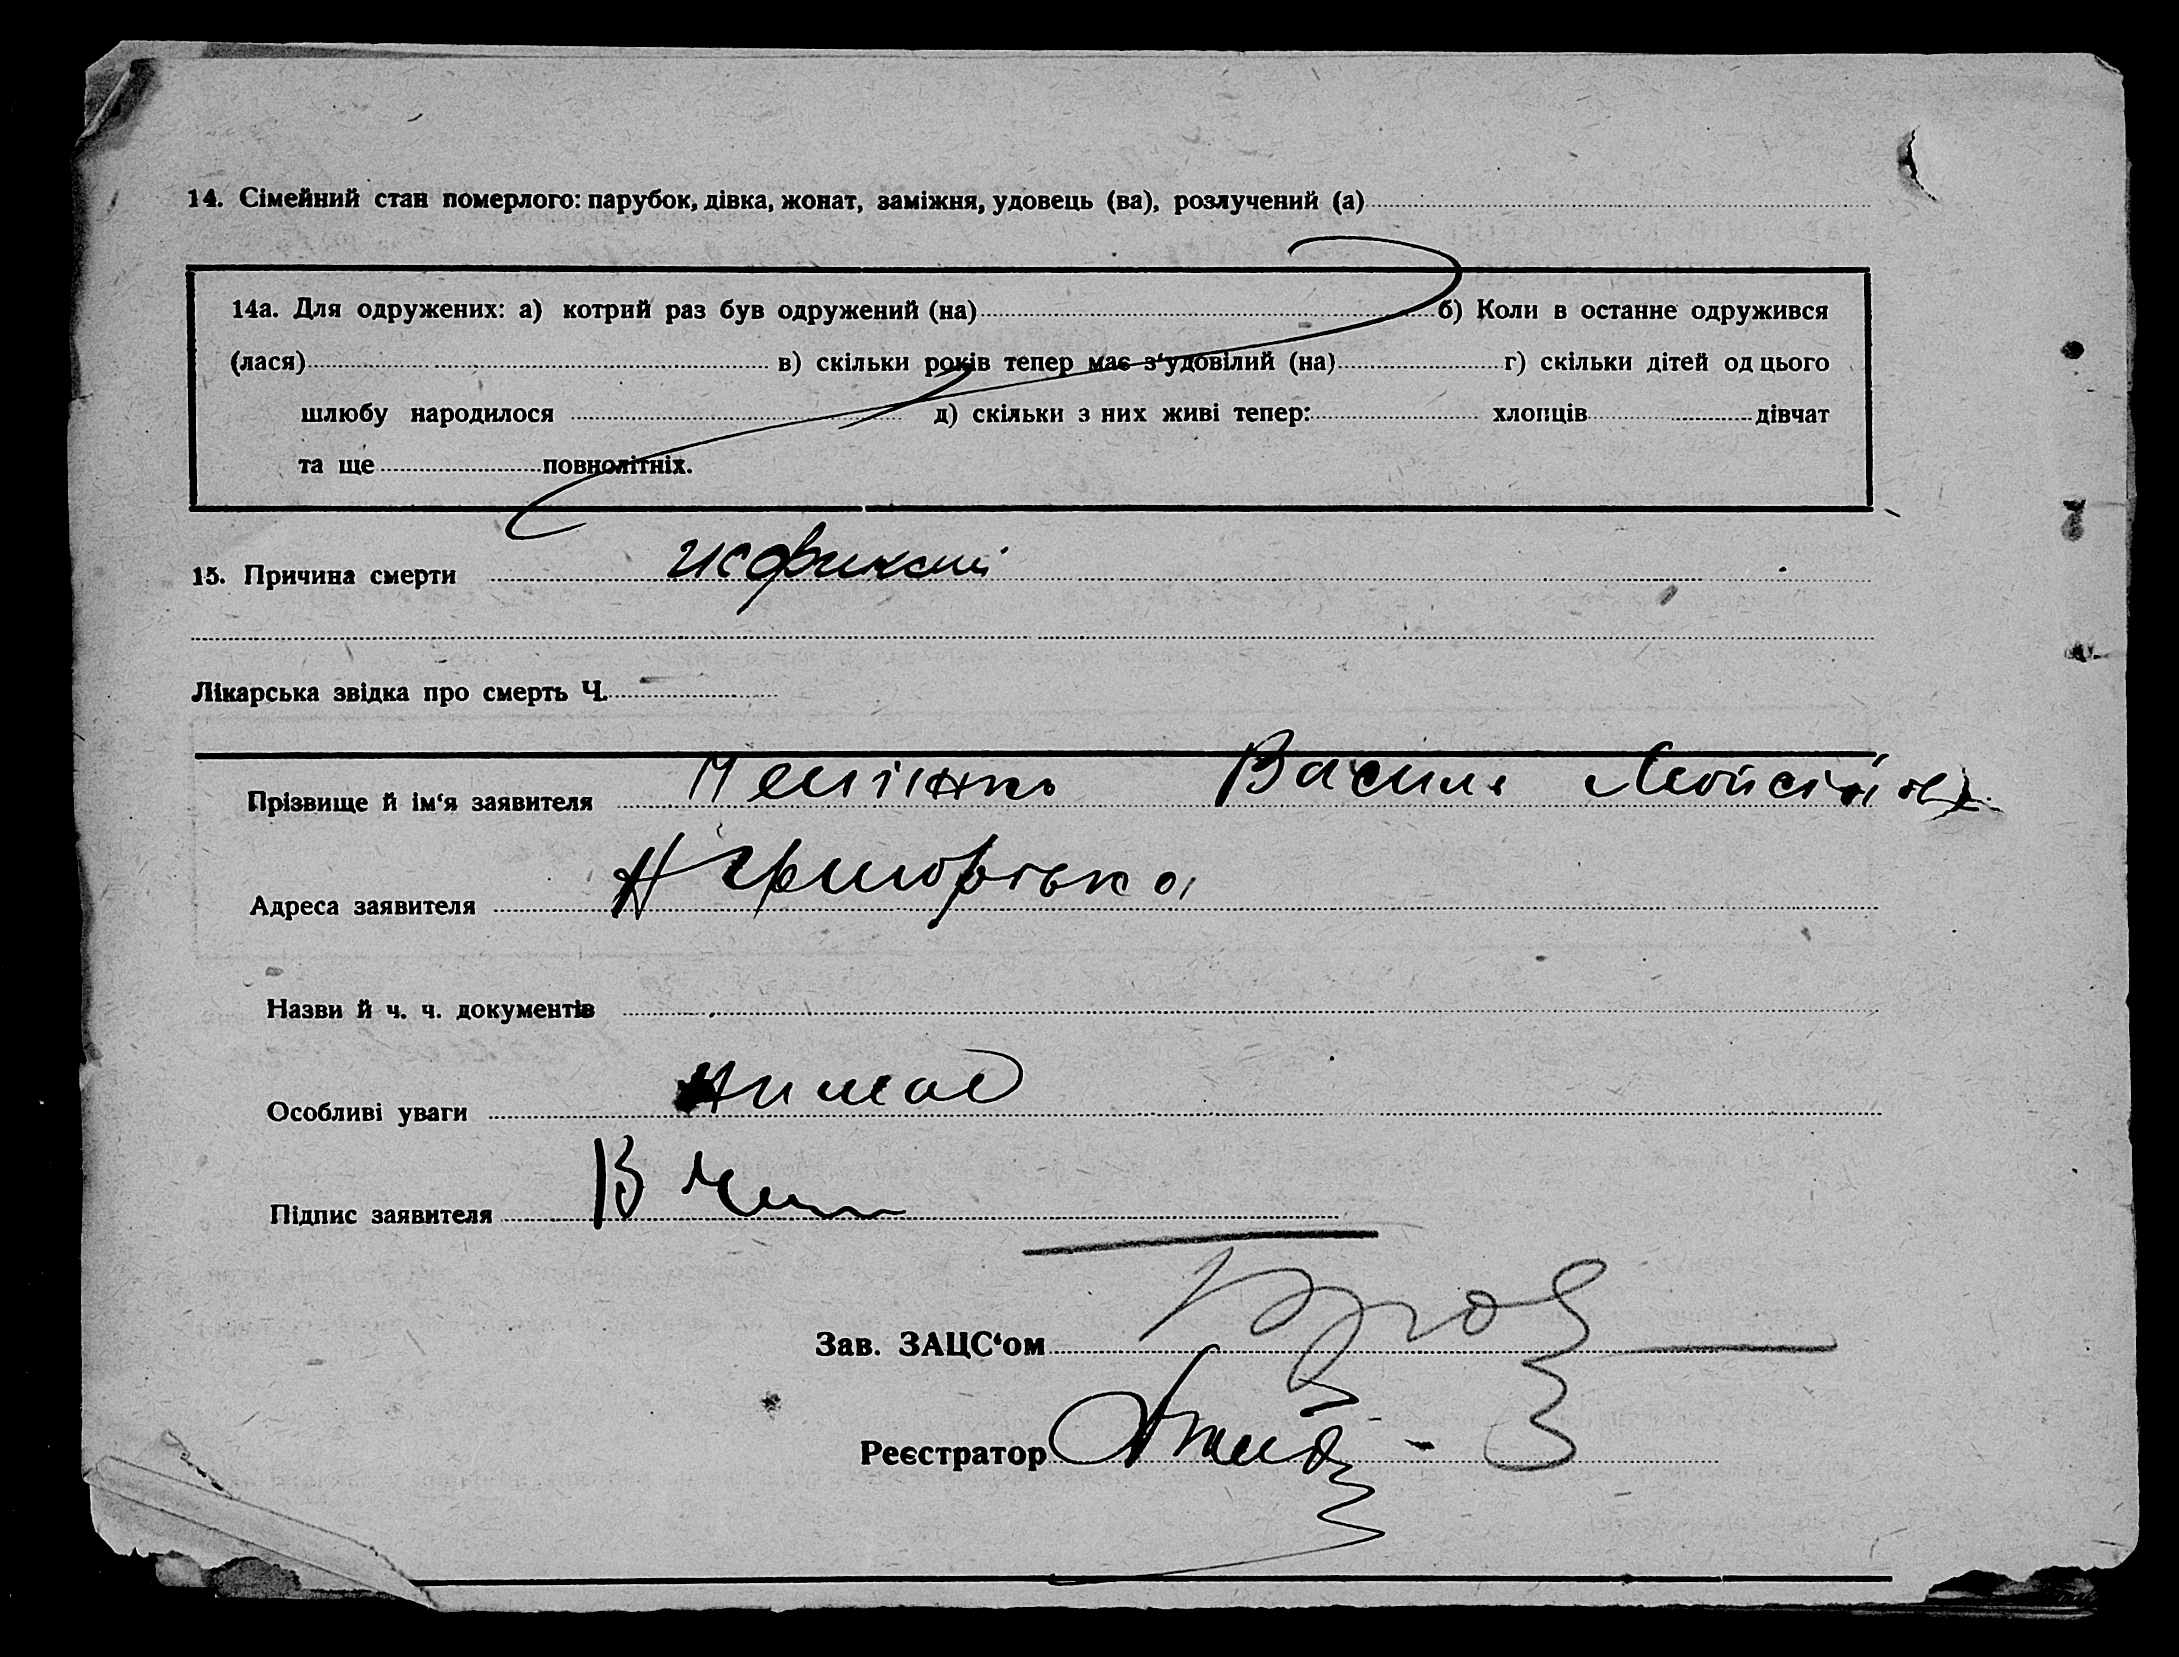 14. Сімейний стан померлого: парубок, дівка, жонат, заміжня, удовець (ва), розлучений (а)
14а. Для одружених: а) котрий раз був одружений (на) б) Коли в останне одружився
(лася) в) скільки років тепер має з‘удовілий (на) г) скільки дітей од цього
шлюбу народилося д) скільки з них живі тепер: хлопців дівчат
та ще повнолітніх.
15. Причина смерти
Лікарська звідка про смерть Ч.
Прізвище й ім‘я заявителя Василь Мойсійов
Адреса заявителя
Назви й ч. ч. документів
Особливі уваги нимає
Підпис заявителя В
Зав. ЗАЦС‘ом
Реєстратор